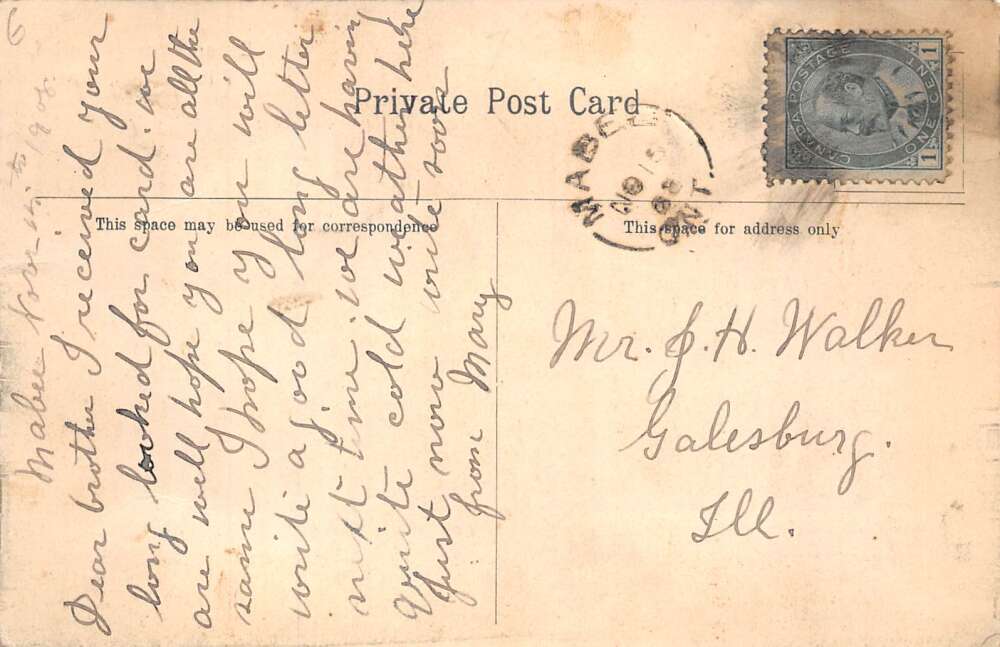 Private Post Card
CANADA POSTAGE
ONE CENT
1 1
MABEE
NO 15
08
ONT
This space may be used for correspondence
This space for address only
Mabee Nov
Dear brother I received your
long looked for card. we
are well hope you are all the
same I hope you will
write a good long letter
next time we are having
Quite cold weather here
Just now write soon
from Mary
Mr. J. H. Walker
Galesburg.
Ill.